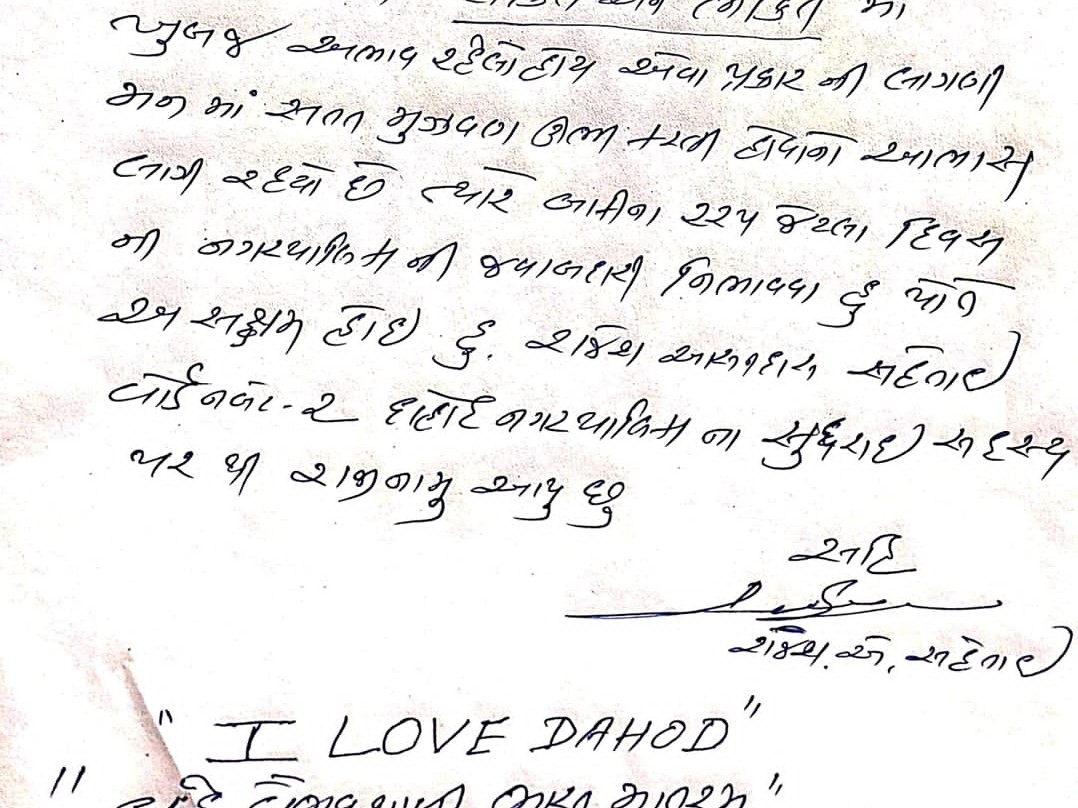 ખુબજ અભાવ રહેલો હોય એવા પ્રકાર ની લાગણી
મન માં સતત મુઝવણ ઊભી કરતી હોવાનો આભાસ
લાગી રહયો છે ત્યારે બાકીના ૨૨૫ જેટલા દિવસ
ની નગરપાલિકા ની જવાબદારી નિભાવવા હું પોતે
અસક્ષમ હોઇ હું. રાજેશ સહેતાઇ
વોર્ડ નબંર-૨ દાહોદ નગરપાલિકા ના સુધરાઇ સદસ્ય
પદ થી રાજીનામુ આપુ છું
સહિ
રાજેશ. એ. સહેતાઇ
"I LOVE DAHOD"